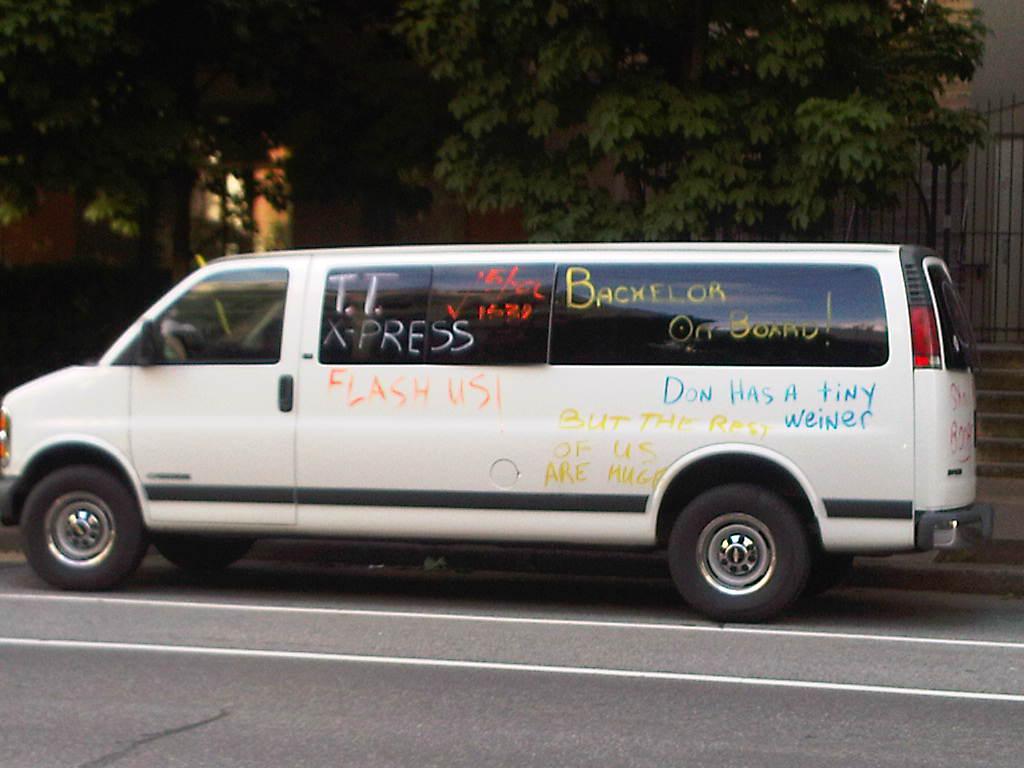 T.T.
X-PRESS
BACHELOR
ON BOARD!
FLASH US!
DON HAS A tiNY
WeiNer
BUT THE REST
OF US
ARE HUGE